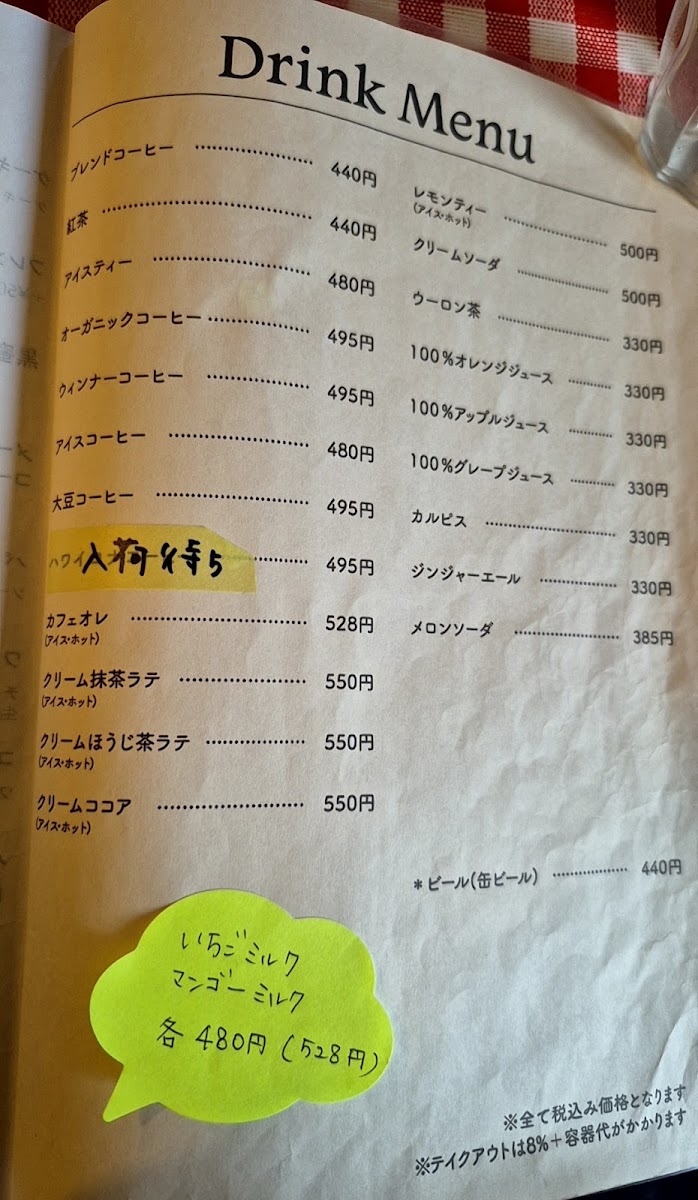 Drink Menu
ブレンドコーヒー 440円
紅茶 440円
アイスティー 480円
オーガニックコーヒー 495円
ウィンナーコーヒー 495円
アイスコーヒー 480円
大豆コーヒー 495円
入荷待ち 495円
カフェオレ 528円
(アイス・ホット)
クリーム抹茶ラテ 550円
(アイス・ホット)
クリームほうじ茶ラテ 550円
(アイス・ホット)
クリームココア 550円
(アイス・ホット)
レモンティー 500円
(アイス・ホット)
クリームソーダ 500円
ウーロン茶 330円
100%オレンジジュース 330円
100%アップルジュース 330円
100%グレープジュース 330円
カルピス 330円
ジンジャーエール 330円
メロンソーダ 385円
*ビール(缶ビール) 440円
いちごミルク
マンゴーミルク
各 480円 (528円)
※全て税込み価格となります
※テイクアウトは8%+容器代がかかります